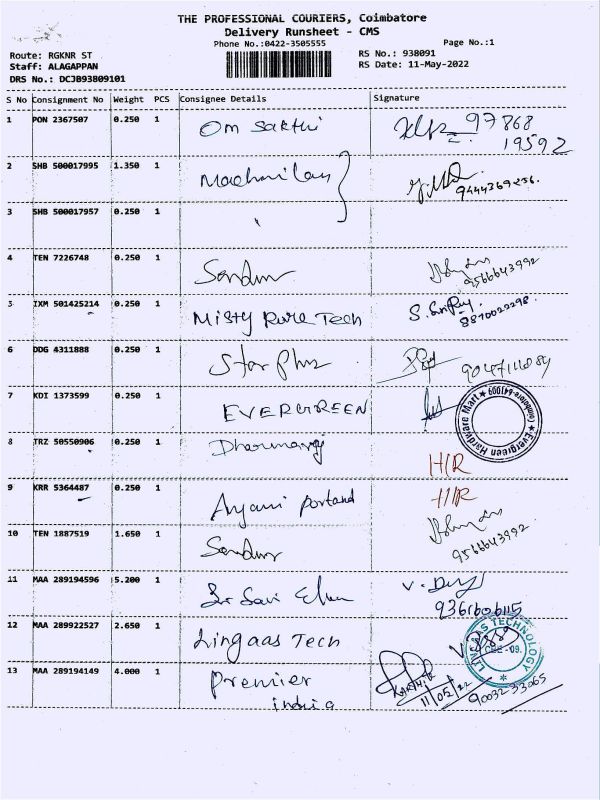 THE PROFESSIONAL COURIERS, Coimbatore
Delivery Runsheet - CMS
Phone No.:0422-3505555
Page No.:1
Route: RGKNR ST
RS No.: 938091
Staff: ALAGAPPAN
RS Date: 11-May-2022
DRS No.: DCJB93809101
S No Consignment No Weight PCS Consignee Details Signature
1 PON 2367507 0.250 1 Om Sakthi 97868
19592
2 SHB 500017995 1.350 1
9444369236.
3 SHB 500017957 0.250 1
4 TEN 7226748 0.250 1
9566643992
5 IXM 501425214 0.250 1 Misty Pure Tech
8870022298.
6 DDG 4311888 0.250 1 Star
7 KDI 1373599 0.250 1 EVERGREEN
★ Evergreen Hardware Mart ★ Coimbatore-641009
8 TRZ 50550906 0.250 1 H/R
9 KRR 5364487 0.250 1 H/R
10 TEN 1887519 1.650 1
9566643992.
11 MAA 289194596 5.200 1
12 MAA 289922527 2.650 1 Lingaas Tech
LINGAAS TECHNOLOGY
CBE-09.
13 MAA 289194149 4.000 1 Premier
india
KARTHIK
11/05/22
90032 33065